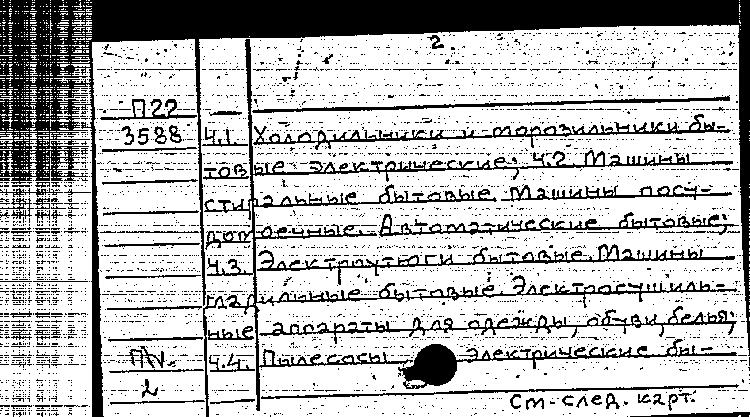 2
П22 —
3588 Ч.1. Холодильники и морозильники бы-
товые электрические; Ч.2 Машины
стиральные бытовые. Машины посу-
домоечные. Автоматические бытовые;
Ч.3. Электроутюги бытовые. Машины
гладильные бытовые. Электросушиль-
ные аппараты для одежды, обуви, белья;
П/v. Ч.4. Пылесосы электрические бы-
2
См-след. карт.